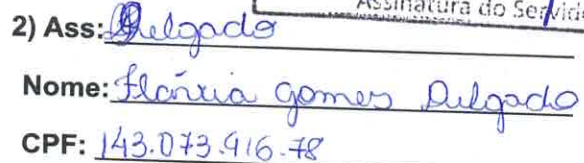 Assinatura do Servid
2) Ass: Delgado
Nome: Flávia Gomes Delgado
CPF: 143.073.916-78